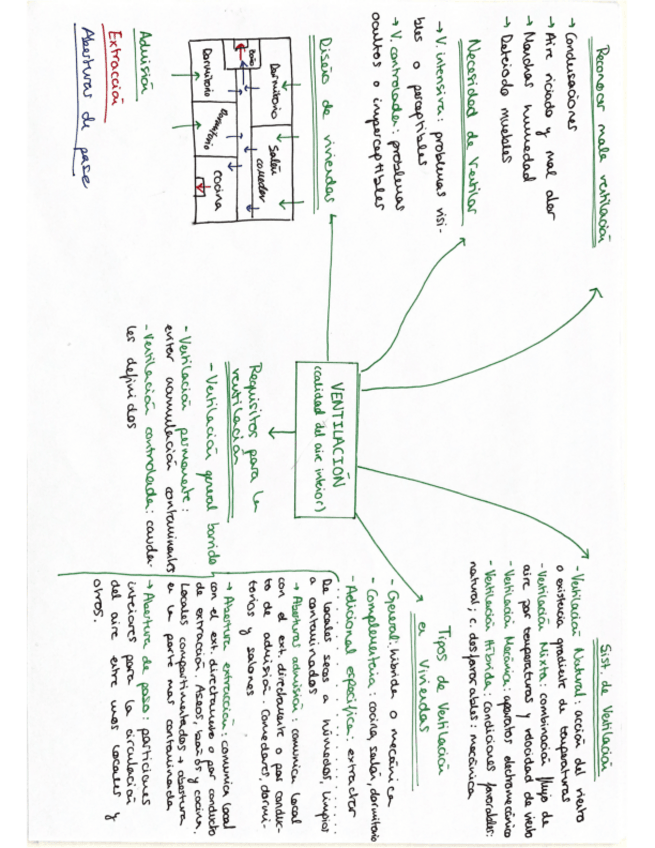 Reconocer mala ventilación
→ Condensaciones
→ Aire viciado y mal olor
→ Manchas humedad
→ Deteriodo muebles
Necesidad de Ventilar
→ V. intensiva: problemas visi-
bles o perceptibles
→ V. controlada: problemas
ocultos o imperceptibles
Diseño de viviendas
Dormitorio
Salón
comedor
baño
Dormitorio
Dormitorio
cocina
Admisión
Extracción
Aberturas de paso
VENTILACIÓN
(calidad del aire interior)
Requisitos para la
ventilación
- Ventilación general barrido
- Ventilación permanente:
evitar acumulación contaminantes
- Ventilación controlada: cauda-
les definidos
Sist. de Ventilación
- Ventilación Natural: acción del viento
o existencia gradiente de temperaturas
- Ventilación Mixta: combinación flujo de
aire por temperaturas y velocidad de viento
- Ventilación Mecánica: aparatos electromecánico
- Ventilación Híbrida: condiciones favorables:
natural; c. desfavorables: mecánica
Tipos de Ventilación
en Viviendas
- General: híbrida o mecánica
- Complementaria: cocina, salón, dormitorio
- Adicional específica: extractor
De locales secos a húmedos, limpios
a contaminados
→ Aberturas admisión: comunica local
con el ext. directamente o por conduc-
to de admisión. Comedores, dormi-
torios y salones
→ Abertura extracción: comunica local
con el ext. directamente o por conducto
de extracción. Aseos, baños y cocina.
Locales compartimentados → abertura
en la parte más contaminada
→ Abertura de paso: particiones
interiores para la circulación
del aire entre unos locales y
otros.